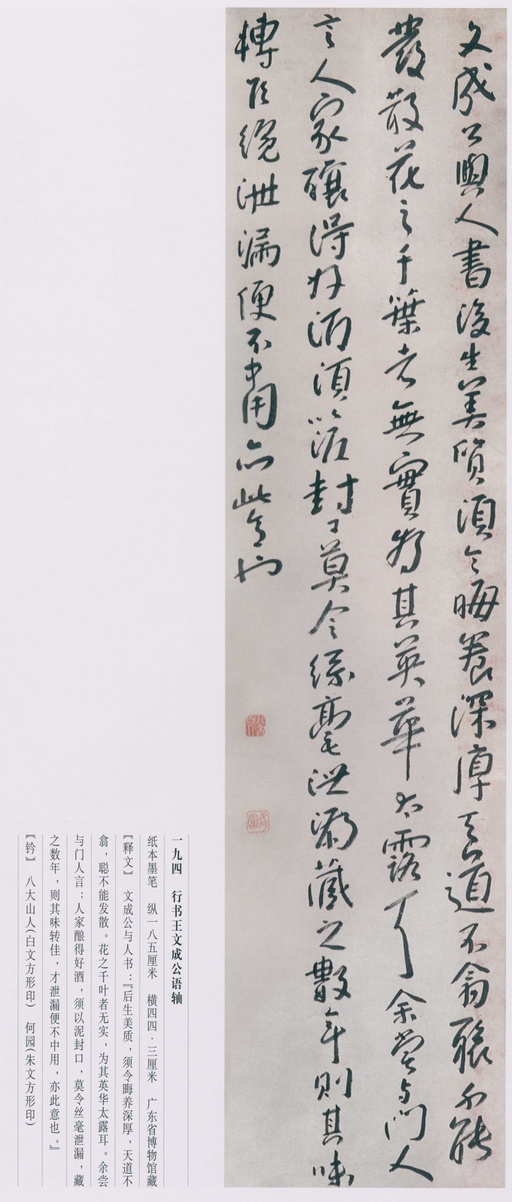 文成公與人書後生美質須令晦養深厚天道不翕聰不能
發散花之千葉者無實為其英華太露耳余嘗与门人
言人家釀得好酒須以泥封口莫令絲毫泄漏藏之數年則其味
轉佳纔泄漏便不中用亦此意也
八大山人
何園
一九四 行书王文成公语轴
纸本墨笔 纵一八五厘米 横四四·三厘米 广东省博物馆藏
【释文】 文成公与人书：『后生美质，须令晦养深厚，天道不
翕，聪不能发散。花之千叶者无实，为其英华太露耳。余尝
与门人言：人家酿得好酒，须以泥封口，莫令丝毫泄漏，藏
之数年，则其味转佳，才泄漏便不中用，亦此意也。』
【钤】 八大山人(白文方形印) 何园(朱文方形印)